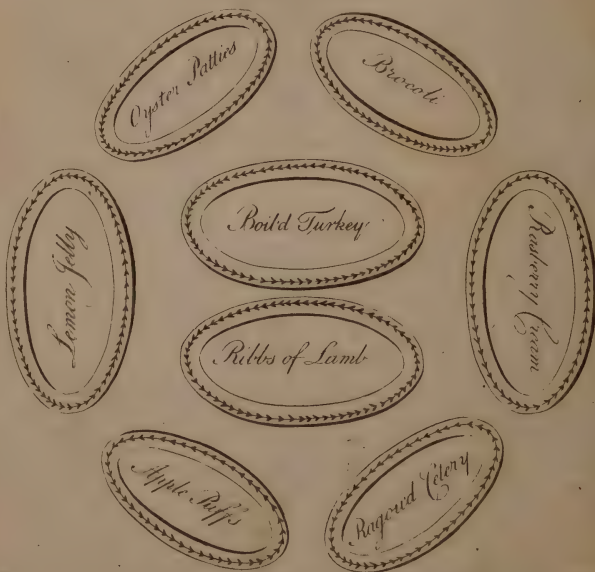 Oyster Patties
Brocoli
Lemon Jelly
Boil'd Turkey
Rasberry Cream
Ribbs of Lamb
Apple Puffs
Ragou'd Celery